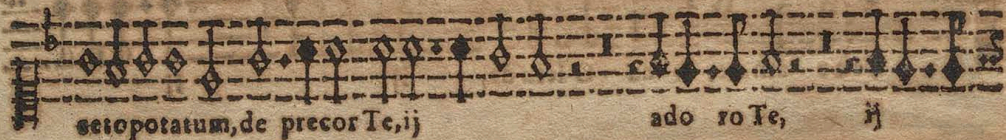 aceto potatum, de precor Te, ij ado ro Te, ij